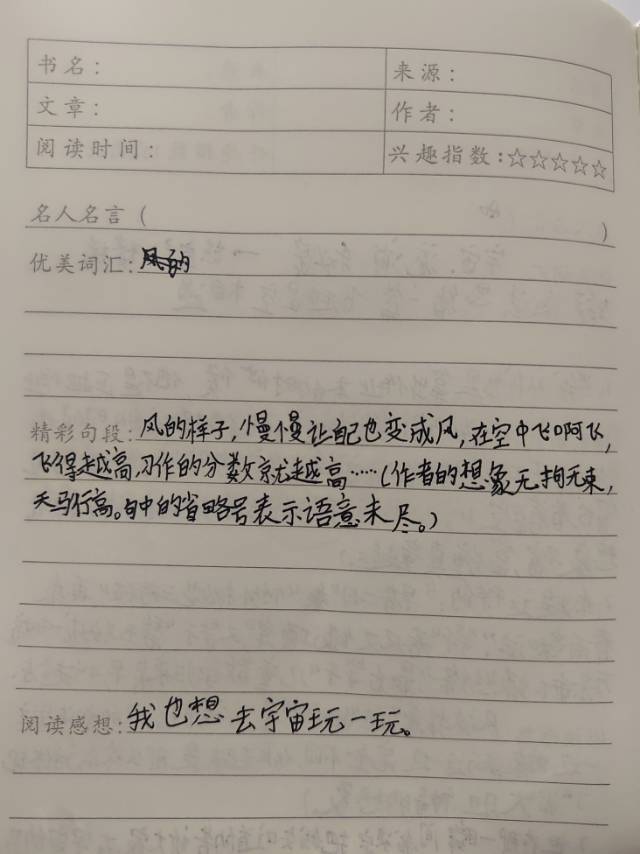 书名：
来源：
文章：
作者：
阅读时间：
兴趣指数：☆☆☆☆☆
名人名言（ ）
优美词汇：
精彩句段：风的样子，慢慢让自己也变成风，在空中飞啊飞，
飞得越高，习作的分数就越高……（作者的想象无拘无束，
天马行高。句中的省略号表示语意未尽。）
阅读感想：我也想去宇宙玩一玩。